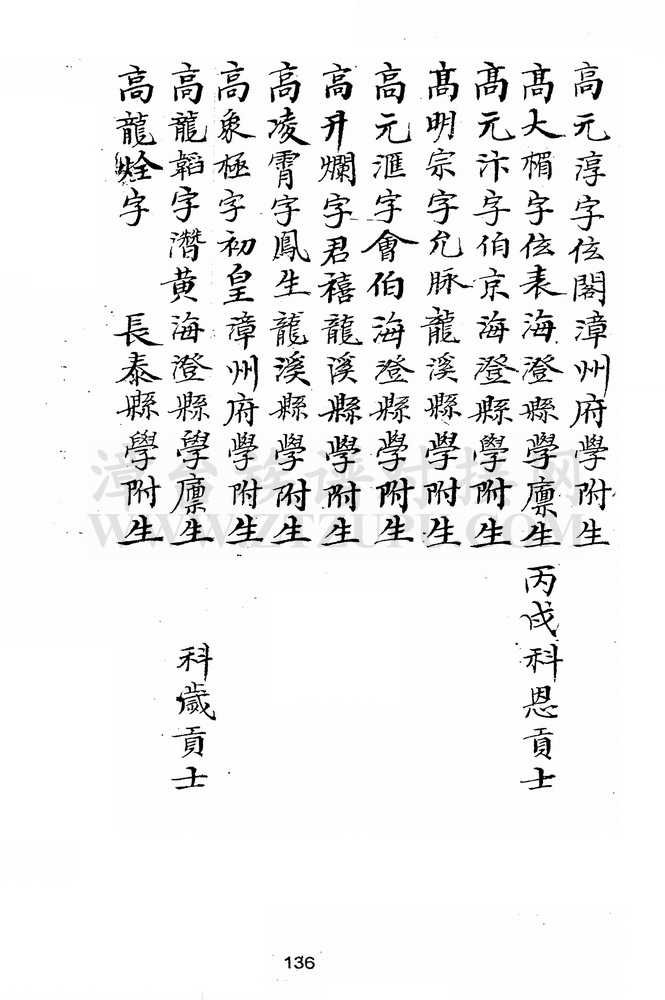 高元淳字伭閣漳州府學附生
高大楣字伭表海澄縣學廩生丙戌科恩貢士
高元汴字伯京海澄縣學附生
高明宗字允脉龍溪縣學附生
高元滙字會伯海澄縣學附生
高升爛字君禧龍溪縣學附生
高凌霄字鳳生龍溪縣學附生
高象極字初皇漳州府學附生
高龍韜字潛黄海澄縣學廩生 科歲貢士
高龍烇字 長泰縣學附生
漳台族谱对接网
WWW.ZTZUPU.COM
136